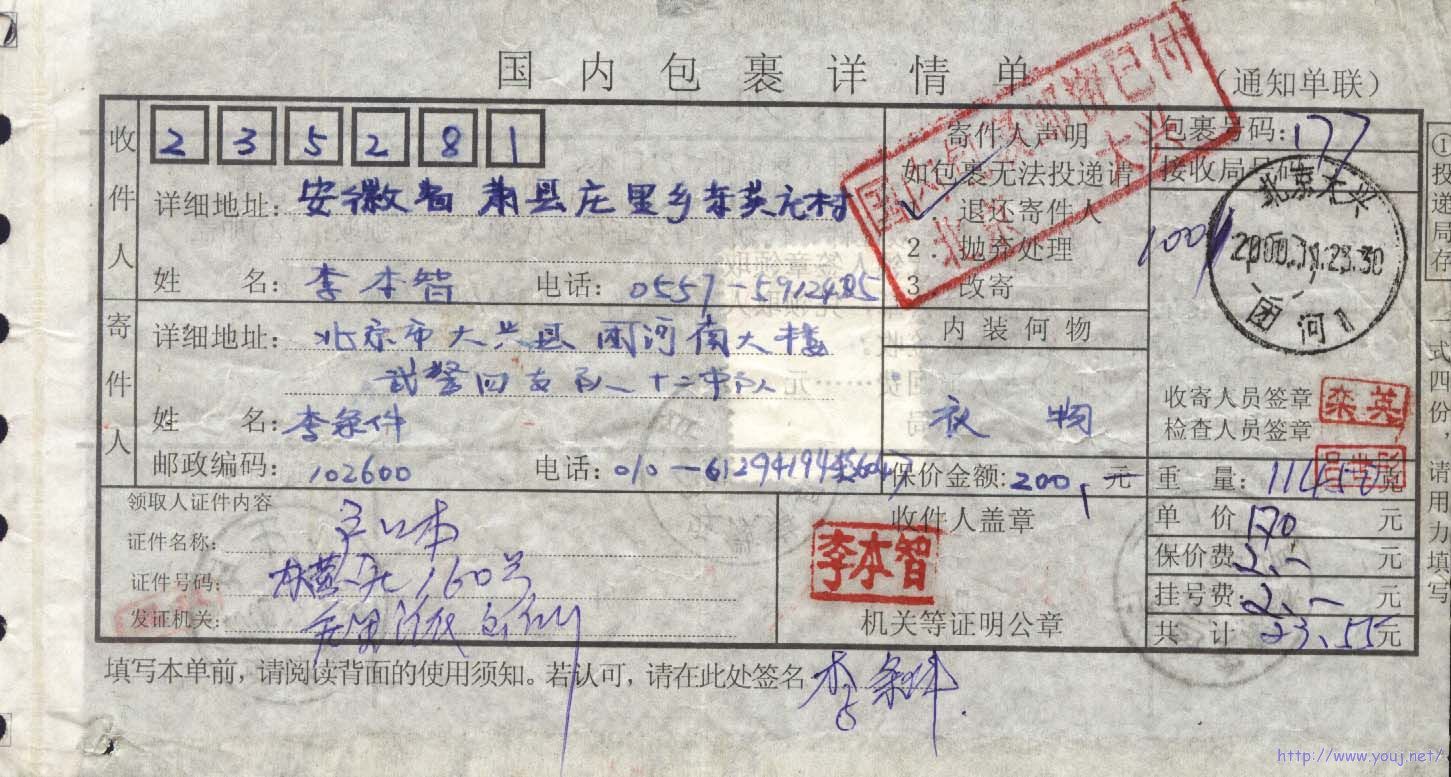 国内包裹详情单
（通知单联）
收件人
235281
详细地址：安徽省萧县庄里乡
姓名：李本智 电话：0557-5912485
寄件人
详细地址：北京市大兴县团河南大楼
武警四支队一十二中队
姓名：李
邮政编码：102600 电话：010-61294194
寄件人声明
如包裹无法投递请
退还寄件人
2．抛弃处理
3 改寄
国内 邮资已付
北京 大兴
内装何物
衣物
保价金额：200，元
包裹号码：177
接收局号码
100
北京大兴
2000.11.23.30
团河1
收寄人员签章 栾英
检查人员签章
重量： 克
单价 170 元
保价费：2.- 元
挂号费：2.- 元
共计 23.55元
领取人证件内容
证件名称：户口本
证件号码： 160号
发证机关：
收件人盖章
李本智
机关等证明公章
填写本单前，请阅读背面的使用须知。若认可，请在此处签名 李
①投递局存
一式四份，请用力填写
http://www.youj.net/